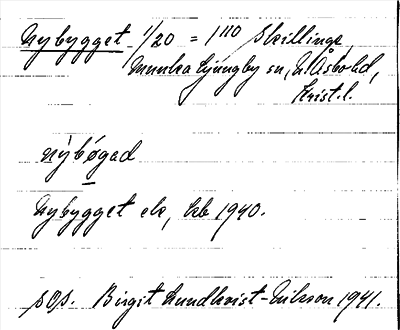 Nybygget 1/20 = 1/110 Skillinge,
Munka Ljungby sn, N. Åsbo hd,
Krist. l.
nỳbǿgad
Nybygget ek, kb 1940.
SOS. Birgit Lundkvist-Eriksson 1941.